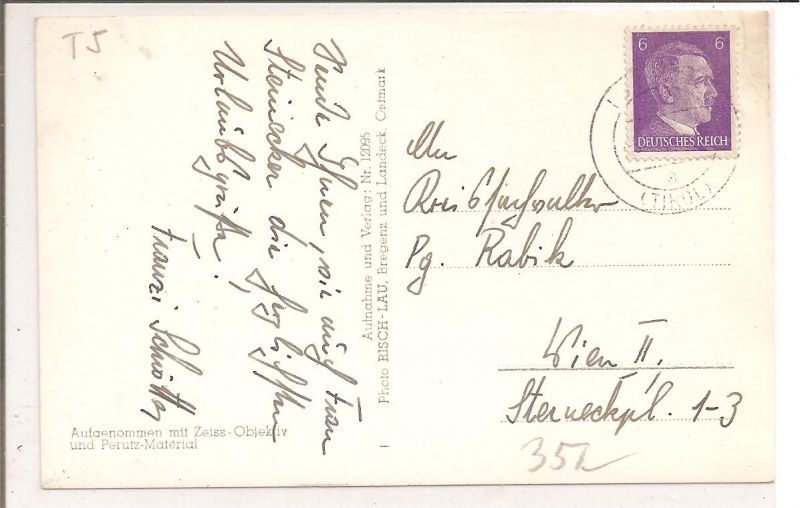 T5
Sende Ihnen, wie auch Frau
Steinecker die herzlichsten
Urlaubsgrüße!
Franzi
Aufgenommen mit Zeiss-Objektiv
und Perutz-Material
Aufnahme und Verlag: Nr. 12095
Photo RISCH-LAU, Bregenz und Landeck, Ostmark
6 6
DEUTSCHES REICH
a
(TIROL)
An
Pg. Rabik
Wien II.
Sterneckpl. 1-3